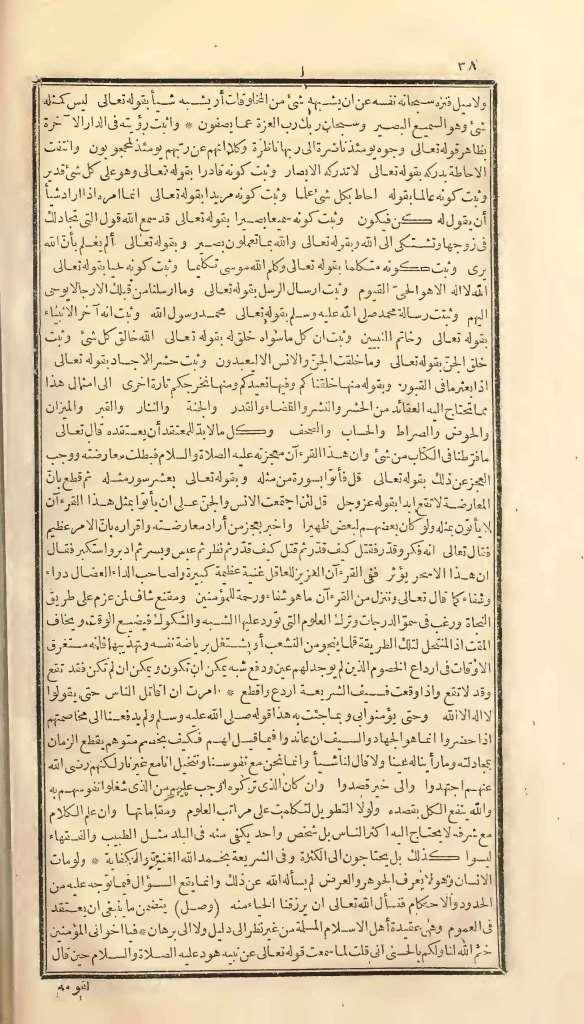 ٣٨
ولا ميل فنزه سبحانه نفسه عن ان يشبهه شئ من المخلوقات أو يشبه شيأ بقوله تعالى ليس كمثله
شئ وهو السميع البصير وسبحان ربك رب العزة عما يصفون * واثبت رؤيته فى الدار الآخرة
بظاهر قوله تعالى وجوه يومئذ ناضرة الى ربها ناظرة وكلا انهم عن ربهم يومئذ لمحجوبون وانتفت
الاحاطة بدركه بقوله تعالى لا تدركه الابصار وثبت كونه قادرا بقوله تعالى وهو على كل شئ قدير
وثبت كونه عالما بقوله احاط بكل شئ علما وثبت كونه مريدا بقوله تعالى انما امره اذا اراد شيأ
أن يقول له كن فيكون وثبت كونه سميعا بصيرا بقوله تعالى قد سمع الله قول التى تجادلك
فى زوجها وتشتكى الى الله وبقوله تعالى والله بما تعملون بصير وبقوله تعالى ألم يعلم بأن الله
يرى وثبت كونه متكلما بقوله تعالى وكلم الله موسى تكليما وثبت كونه حيا بقوله تعالى
الله لا اله الا هو الحى القيوم وثبت ارسال الرسل بقوله تعالى وما ارسلنا من قبلك الا رجالا يوحى
اليهم وثبتت رسالة محمد صلى الله عليه وسلم بقوله تعالى محمد رسول الله وثبت انه آخر الانبياء
بقوله تعالى وخاتم النبيين وثبت ان كل ما سواه خلق له بقوله تعالى الله خالق كل شئ وثبت
خلق الجن بقوله تعالى وما خلقت الجن والانس الا ليعبدون وثبت حشر الاجساد بقوله تعالى
اذا بعثر ما فى القبور وبقوله منها خلقناكم وفيها نعيدكم ومنها نخرجكم تارة اخرى الى امثال هذا
مما تحتاج اليه العقائد من الحشر والنشر والقضاء والقدر والجنة والنار والقبر والميزان
والحوض والصراط والحساب والصحف وكل ما لابد للمعتقد أن يعتقده قال تعالى
ما فرطنا فى الكتاب من شئ وان هذا القرءآن معجزته عليه الصلاة والسلام فبطلت معارضته ووجب
العجز عن ذلك بقوله تعالى قل فأتوا بسورة من مثله وبقوله تعالى بعشر سور مثله ثم قطع بان
المعارضة لا تقع ابدا بقوله عز وجل قل لئن اجتمعت الانس والجن على ان يأتوا بمثل هذا القرءآن
لا يأتون بمثله ولو كان بعضهم لبعض ظهيرا واخبر بعجز من أراد معارضته واقراره بان الامر عظيم
فقال تعالى انه فكر وقدر فقتل كيف قدر ثم قتل كيف قدر ثم نظر ثم عبس وبسر ثم ادبر واستكبر فقال
ان هذا الا سحر يؤثر ففى القرءآن العزيز للعاقل غنية عظيمة كبيرة ولصاحب الداء العضال دواء
وشفاء كما قال تعالى وننزل من القرءآن ما هو شفاء ورحمة للمؤمنين ومقنع شاف لمن عزم على طريق
النجاة ورغب فى سمو الدرجات وترك العلوم التى تورد عليها الشبه والشكوك فيضيع الوقت ويخاف
المقت اذ المنتحل لتلك الطريقة قلما ينجو من التشعب أو يشتغل برياضة نفسه وتهذيبها فانه مستغرق
الاوقات فى ارداع الخصوم الذين لم يوجد لهم عين ودفع شبه يمكن ان تكون ويمكن ان لم تكن فقد تقع
وقد لا تقع واذا وقعت فسيف الشريعة اردع واقطع * امرت ان اقاتل الناس حتى يقولوا
لا اله الا الله وحتى يؤمنوا بى وبما جئت به هذا قوله صلى الله عليه وسلم ولم يدفعنا الى مخاصمتهم
اذا حضروا انما هو الجهاد والسيف ان عاندوا فيما قيل لهم فكيف بخصم متوهم يقطع الزمان
بمجادلته وما رأينا له عينا ولا قال لنا شيأ وانما نحن مع نفوسنا ونتخيل انا مع غيرنا ولكنهم رضى الله
عنهم اجتهدوا والى خير قصدوا وان كان الذى تركوه اوجب عليهم من الذى شغلوا نفوسهم به
والله ينفع الكل بقصده ولولا التطويل لتكلمت على مراتب العلوم ومقاماتها وان علم الكلام
مع شرفه لا يحتاج اليه اكثر الناس بل شخص واحد يكفى منه فى البلد مثل الطبيب والفقهاء
ليسوا كذلك بل يحتاجون الى الكثرة وفى الشريعة بحمد الله الغنية والكفاية * ولو مات
الانسان وهو لا يعرف الجوهر والعرض لم يسأله الله عن ذلك وانما يقع السؤال فيما توجه عليه من
الحدود والاحكام فنسأل الله تعالى ان يرزقنا الحياء منه (وصل) يتضمن ما ينبغى ان يعتقد
فى العموم وهى عقيدة أهل الاسلام المسلمة من غير نظر الى دليل ولا الى برهان * فيا اخوانى المؤمنين
ختم الله لنا ولكم بالحسنى انى قلت لما سمعت قوله تعالى عن نبيه هود عليه الصلاة والسلام حين قال